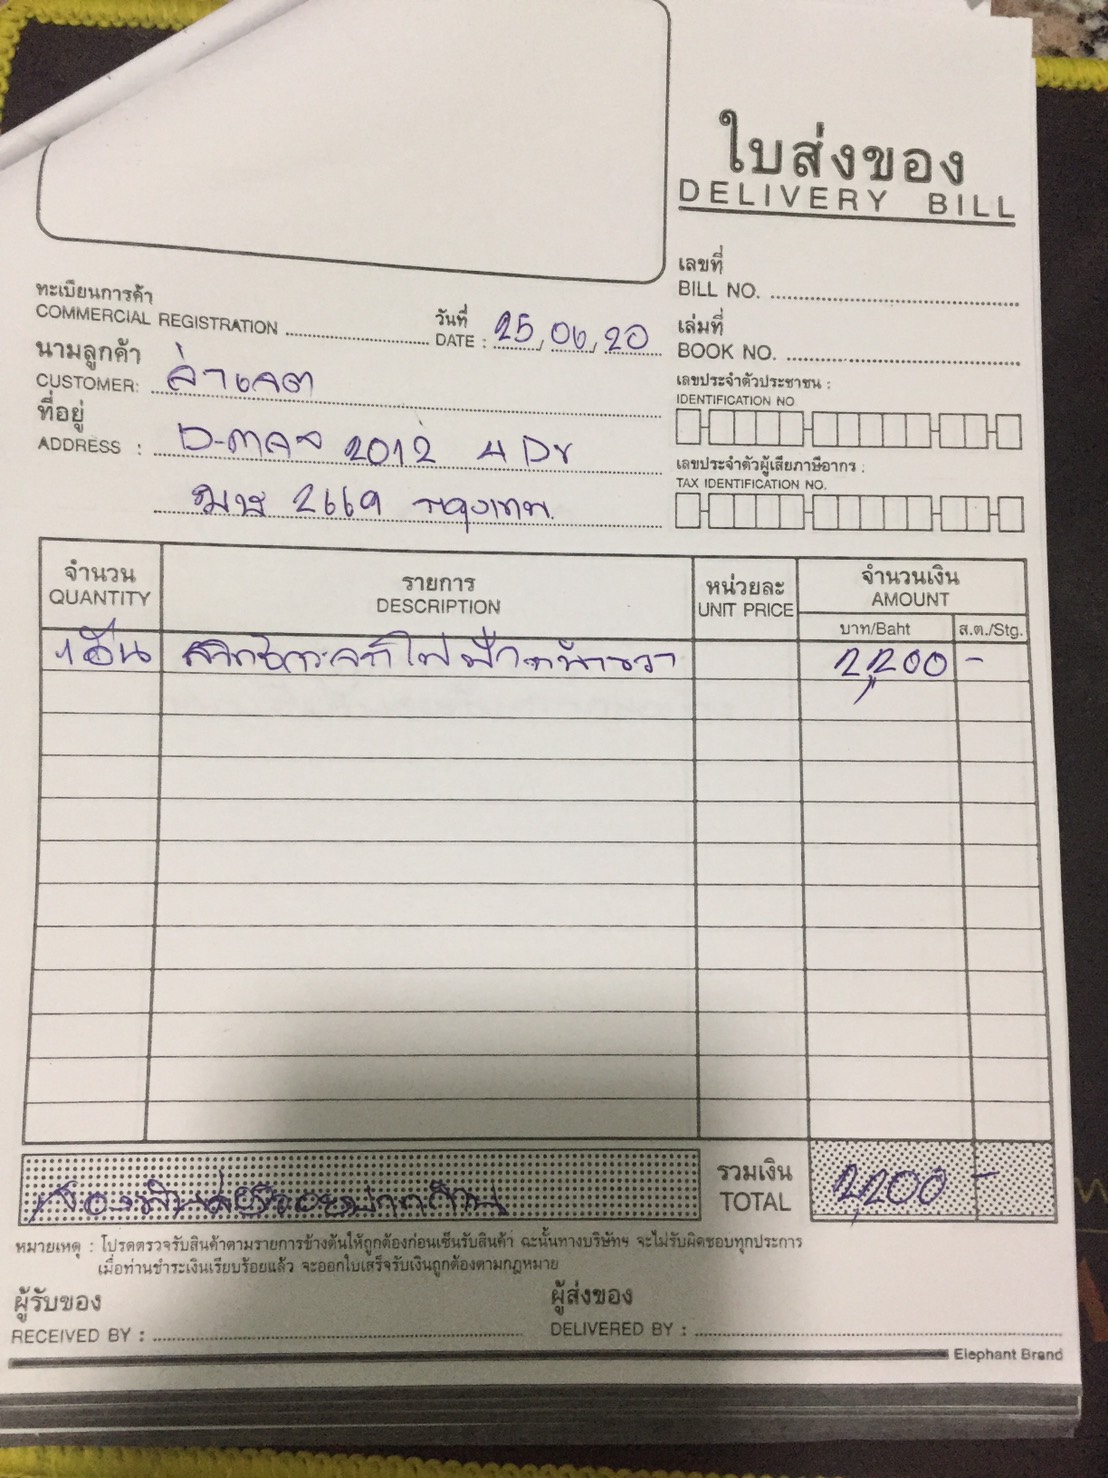 ใบส่งของ
DELIVERY BILL
เลขที่
BILL NO.
ทะเบียนการค้า
COMMERCIAL REGISTRATION
วันที่
DATE : 25, 06, 20
เล่มที่
BOOK NO.
นามลูกค้า
CUSTOMER:
เลขประจำตัวประชาชน :
IDENTIFICATION NO
ที่อยู่
ADDRESS : D-max 2012 4 Dr
2669 กรุงเทพ
เลขประจำตัวผู้เสียภาษีอากร :
TAX IDENTIFICATION NO.
จำนวน
QUANTITY
รายการ
DESCRIPTION
หน่วยละ
UNIT PRICE
จำนวนเงิน
AMOUNT
บาท/Baht
ส.ต./Stg.
1 อัน สวิทช์กระจกไฟฟ้าหน้าขวา 2,200 -
สองพันสองร้อยบาทถ้วน
รวมเงิน
TOTAL
2,200 -
หมายเหตุ : โปรดตรวจรับสินค้าตามรายการข้างต้นให้ถูกต้องก่อนเซ็นรับสินค้า ฉะนั้นทางบริษัทฯ จะไม่รับผิดชอบทุกประการ
เมื่อท่านชำระเงินเรียบร้อยแล้ว จะออกใบเสร็จรับเงินถูกต้องตามกฎหมาย
ผู้รับของ
RECEIVED BY :
ผู้ส่งของ
DELIVERED BY :
Elephant Brand